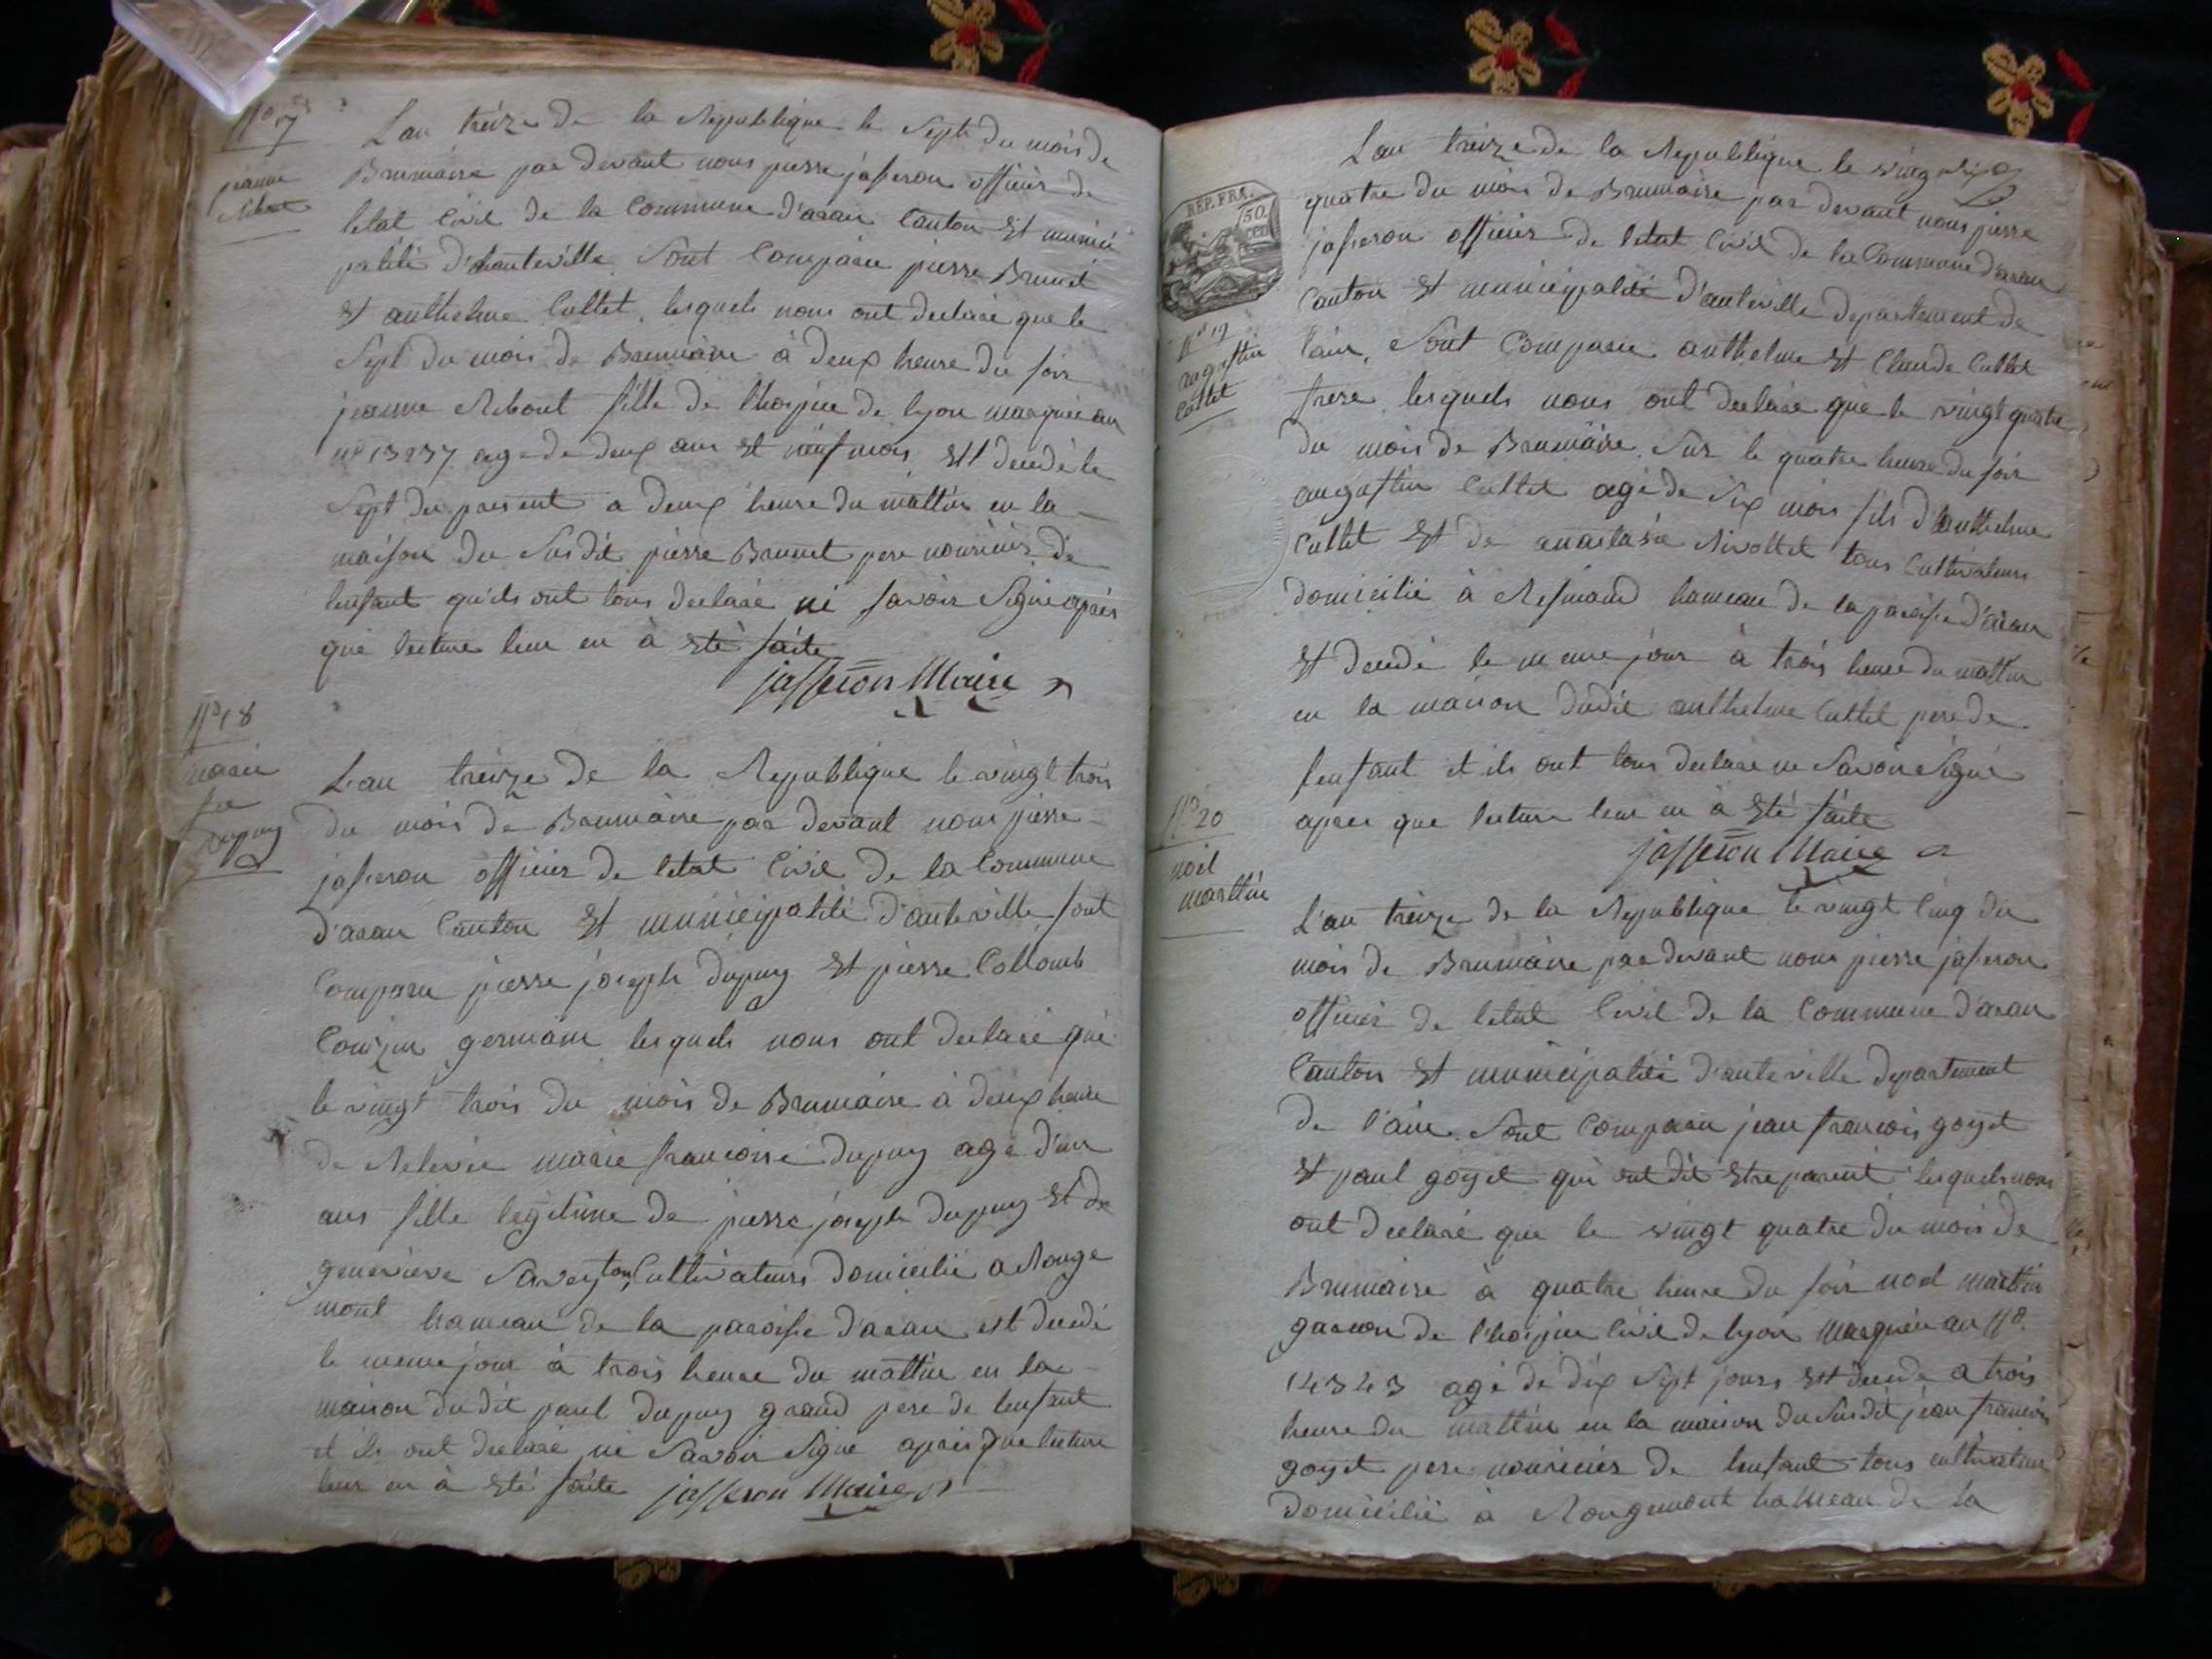 n° 17
jeanne
Ribout
L'an treize de la Republique le sept du mois de
Brumaire par devant nous pierre jasseron officier de
letat civil de la Commune d'aran Canton Et munici
palité d'hauteville Sont Comparu pierre Brunet
Et anthelme Cullet lesquels nous ont declaré que le
Sept du mois de Brumaire à deux heure du soir
jeanne Ribout fille de l'hospice de lyon marquée au
n° 13237 age de deux ans Et neuf mois Est decedé le
Sept du present a deux heure du mattin en la
maison du Susdit pierre Brunet pere nouricier de
lenfant qu'ils ont tous declaré ni savoir Signé après
que lecture leur en à Eté faite
jasseron Maire
n° 18
marie
fse
dupuy
L'an treize de la Republique le vingt trois
du mois de Brumaire par devant nous pierre
jasseron officier de letat Civil de la Commune
d'aran Canton Et municipalité d'auteville sont
Comparu pierre joseph dupuy Et pierre Collomb
Cousin germain lesquels nous ont declaré que
le vingt trois du mois de Brumaire à deux heure
de Relevée marie francoise dupuy age d'un
ans fille legitime de pierre joseph dupuy Et de
genevieve Savey tous Cultivateurs domicilié a Rouge
mont hameau de la paroisse d'aran est decedé
le meme jour à trois heure du mattin en la
maison dudit paul dupuy grand pere de lenfant
et ils ont declaré ni Savoir Signe après que lecture
leur en à Eté faite jasseron Maire
REP. FRA.
50
CEN
n° 19
augustin
Cullet
L'an treize de la Republique le vingt
quatre du mois de Brumaire par devant nous pierre
jasseron officier de letat Civil de la Commune d'aran
Canton Et municipalité d'auteville departement de
l'ain, Sont Comparu anthelme Et Claude Cullet
frere lesquels nous ont declaré que le vingt quatre
du mois de Brumaire Sur le quatre heure du soir
augustin Cullet agé de Six mois fils d'anthelme
Cullet Et de anastasie Rivollet tous Cultivateurs
domicilié à Resinand hameau de la paroisse d'aran
Est decedé le meme jour à trois heure du mattin
en la maison dudit anthelme Cullet pere de
lenfant et ils ont tous declaré ne Savoir Signé
apres que lecture leur en à Eté faite
jasseron Maire
n° 20
noel
marttin
L'an treize de la Republique le vingt Cinq du
mois de Brumaire par devant nous pierre jasseron
officier de letat Civil de la Commune d'aran
Canton Et municipalité d'auteville departement
de l'ain Sont Comparu jean francois goyet
Et paul goyet qui ont dit Etre parent lesquels nous
ont declaré que le vingt quatre du mois de
Brumaire à quatre heure du soir noel marttin
garcon de l'hospice Civil de lyon marquée au n°
14343 agé de dix Sept jours Est decedé a trois
heure du mattin en la maison du Susdit jean francois
goyet pere nouricier de lenfant tous cultivateur
domicilié à Rougemont hameau de la